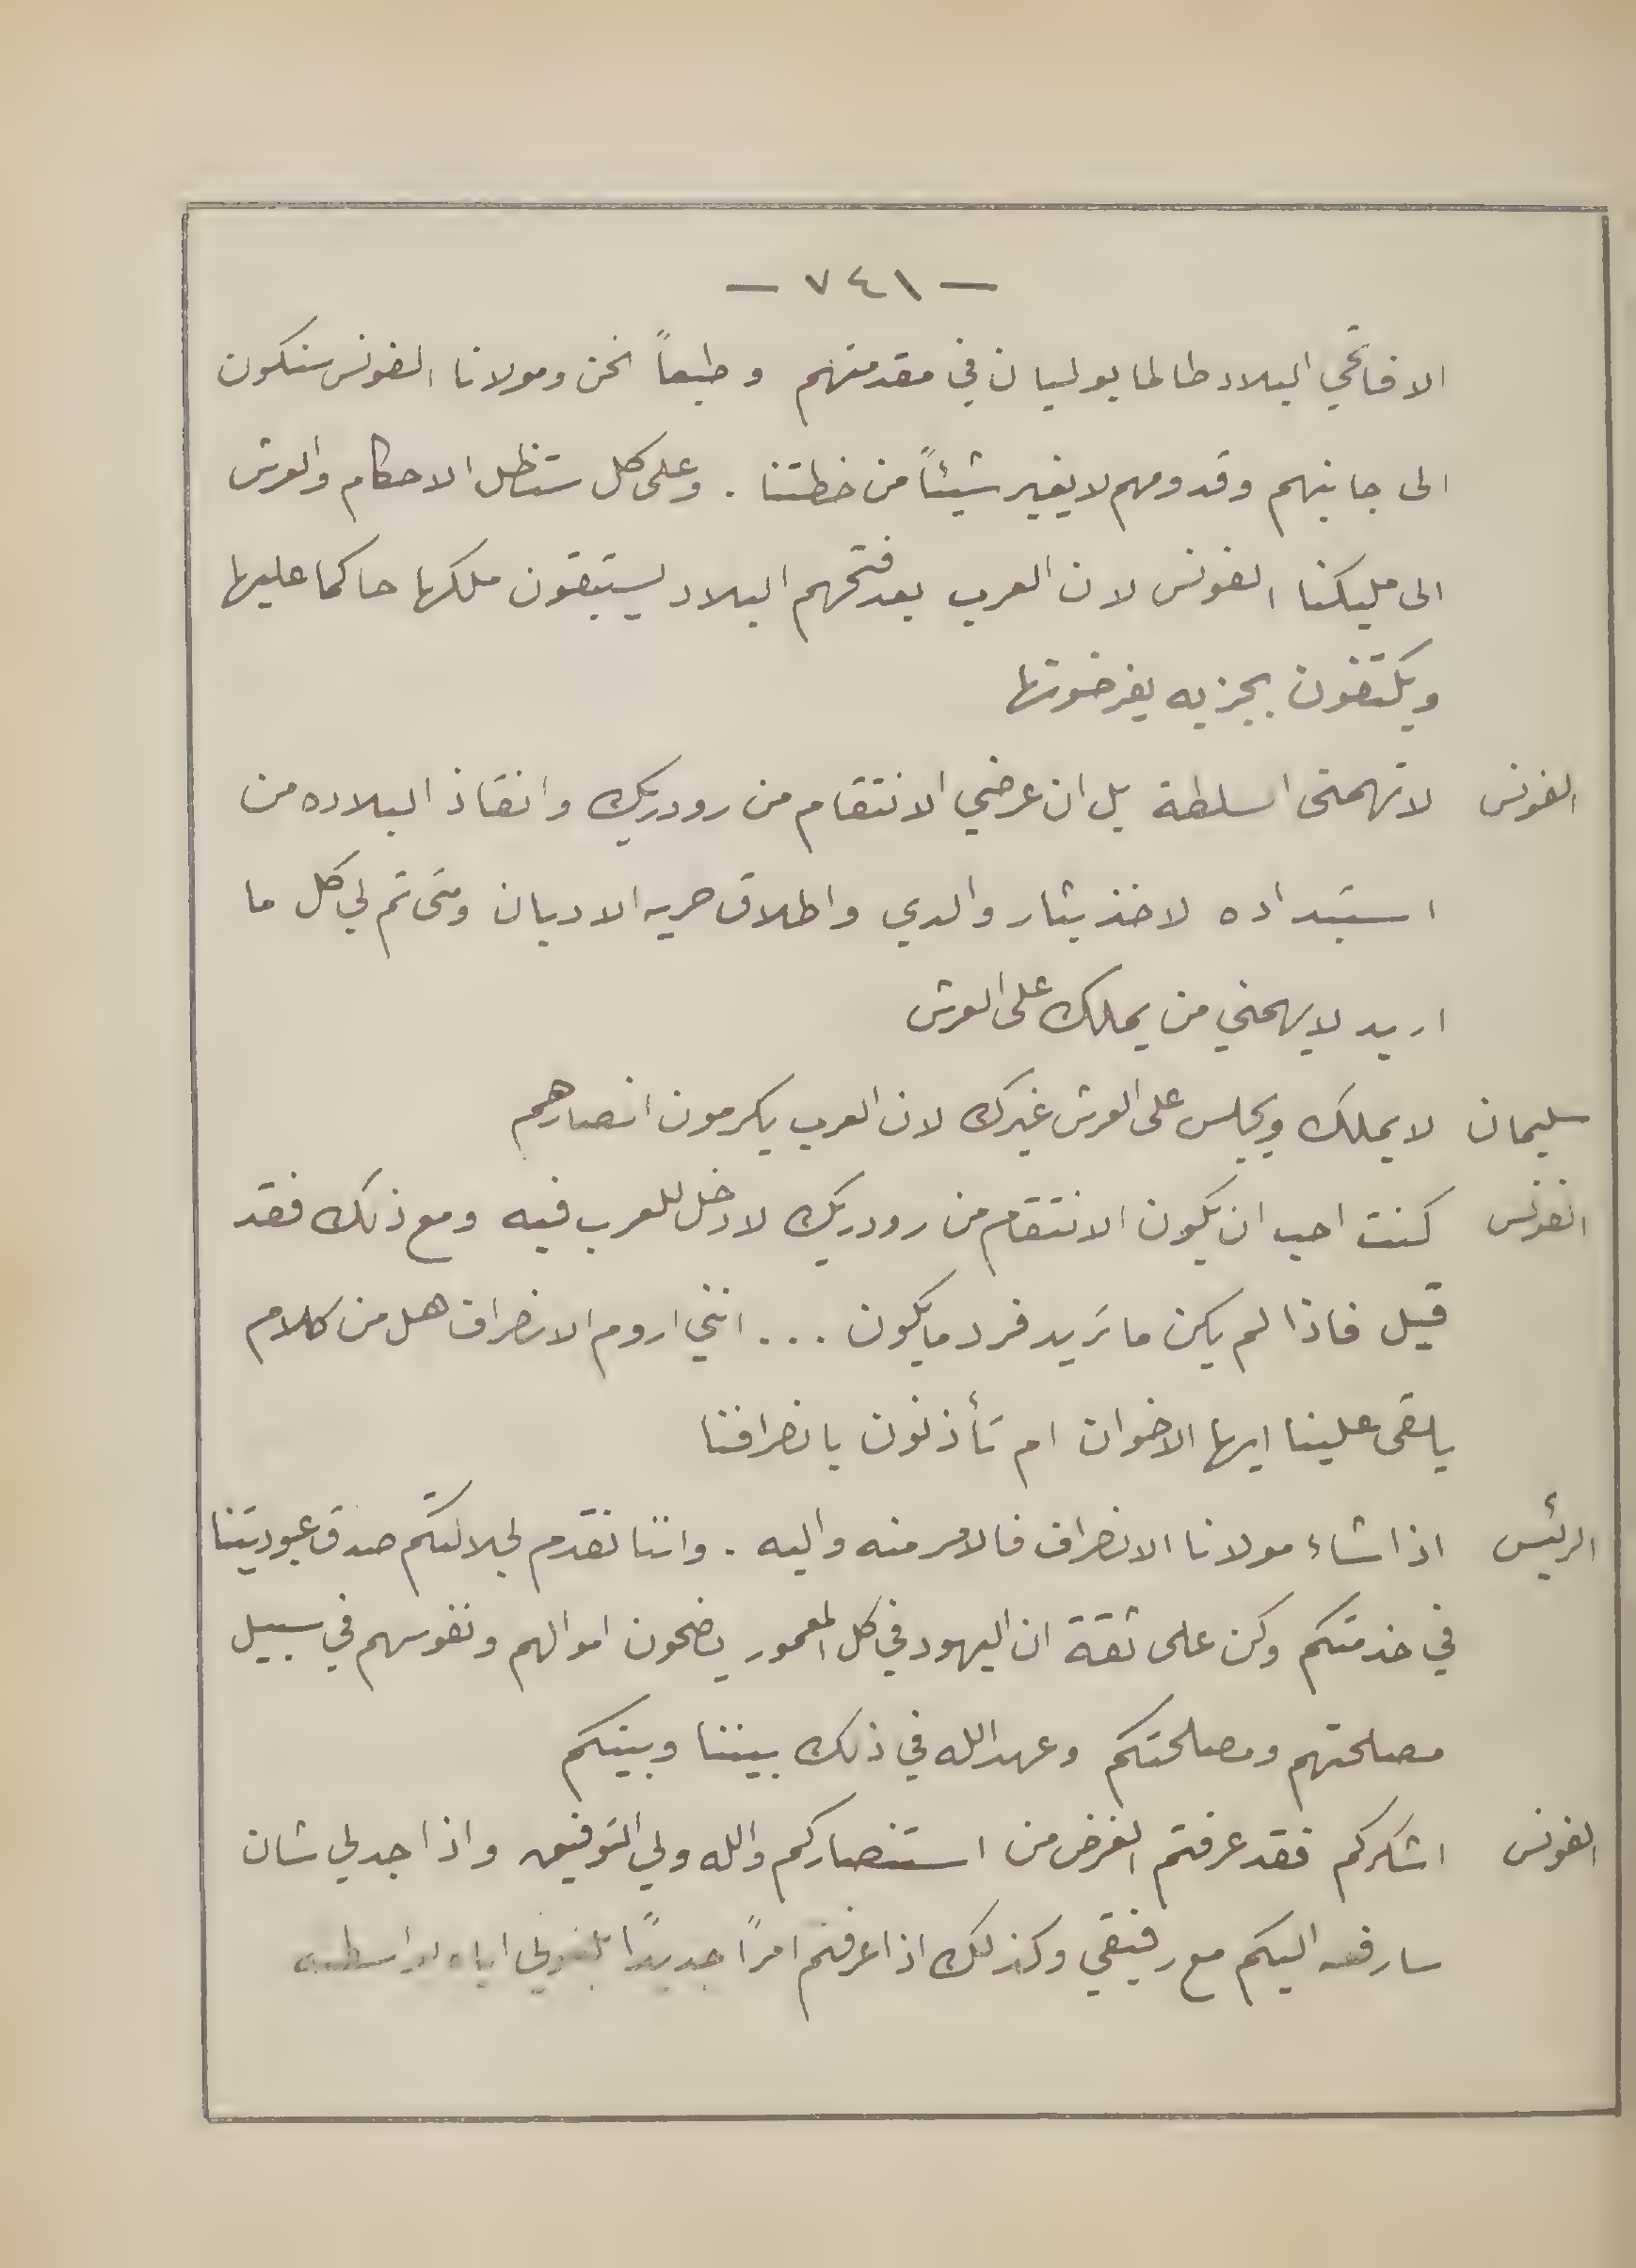 — ٧٤١ —
الا فاتحي البلاد طالما يوليان في مقدمتهم وطبعاً نحن ومولانا الفونس سنكون
الى جانبهم وقدومهم لا يغير شيئاً من خطتنا . وعلى كل ستظل الاحكام والعرش
الى مليكنا الفونس لان العرب بعد فتحهم البلاد يستبقون ملكها حاكما عليها
ويكتفون بجزيه يفرضونها
الفونس لا تهمني السلطة بل ان غرضي الانتقام من رودريك وانقاذ البلاد من
استبداده لاخذ بثار والدي واطلاق حريه الاديان ومتى تم لي كل ما
اريد لا يهمني من يملك على العرش
سليمان لا يملك ويجلس على العرش غيرك لان العرب يكرمون انصارهم
الفونس كنت احب ان يكون الانتقام من رودريك لا دخل للعرب فيه ومع ذلك فقد
قيل فاذا لم يكن ما تريد فرد ما يكون ... انني اروم الانصراف هل من كلام
يلقى علينا ايها الاخوان ام تأذنون بانصرافنا
الرئيس اذا شاء مولانا الانصراف فالامر منه واليه . واننا نقدم لجلالتكم صدق عبوديتنا
في خدمتكم وكن على ثقة ان اليهود في كل المعمور يضحون اموالهم ونفوسهم في سبيل
مصلحتهم ومصلحتكم وعهد الله في ذلك بيننا وبينكم
الفونس اشكركم فقد عرفتم الغرض من استنصاركم والله ولي التوفيق واذا جد لي شان
سارفعه اليكم مع رفيقي وكذلك اذا عرفتم امراً جديداً بلغوني اياه بواسطته